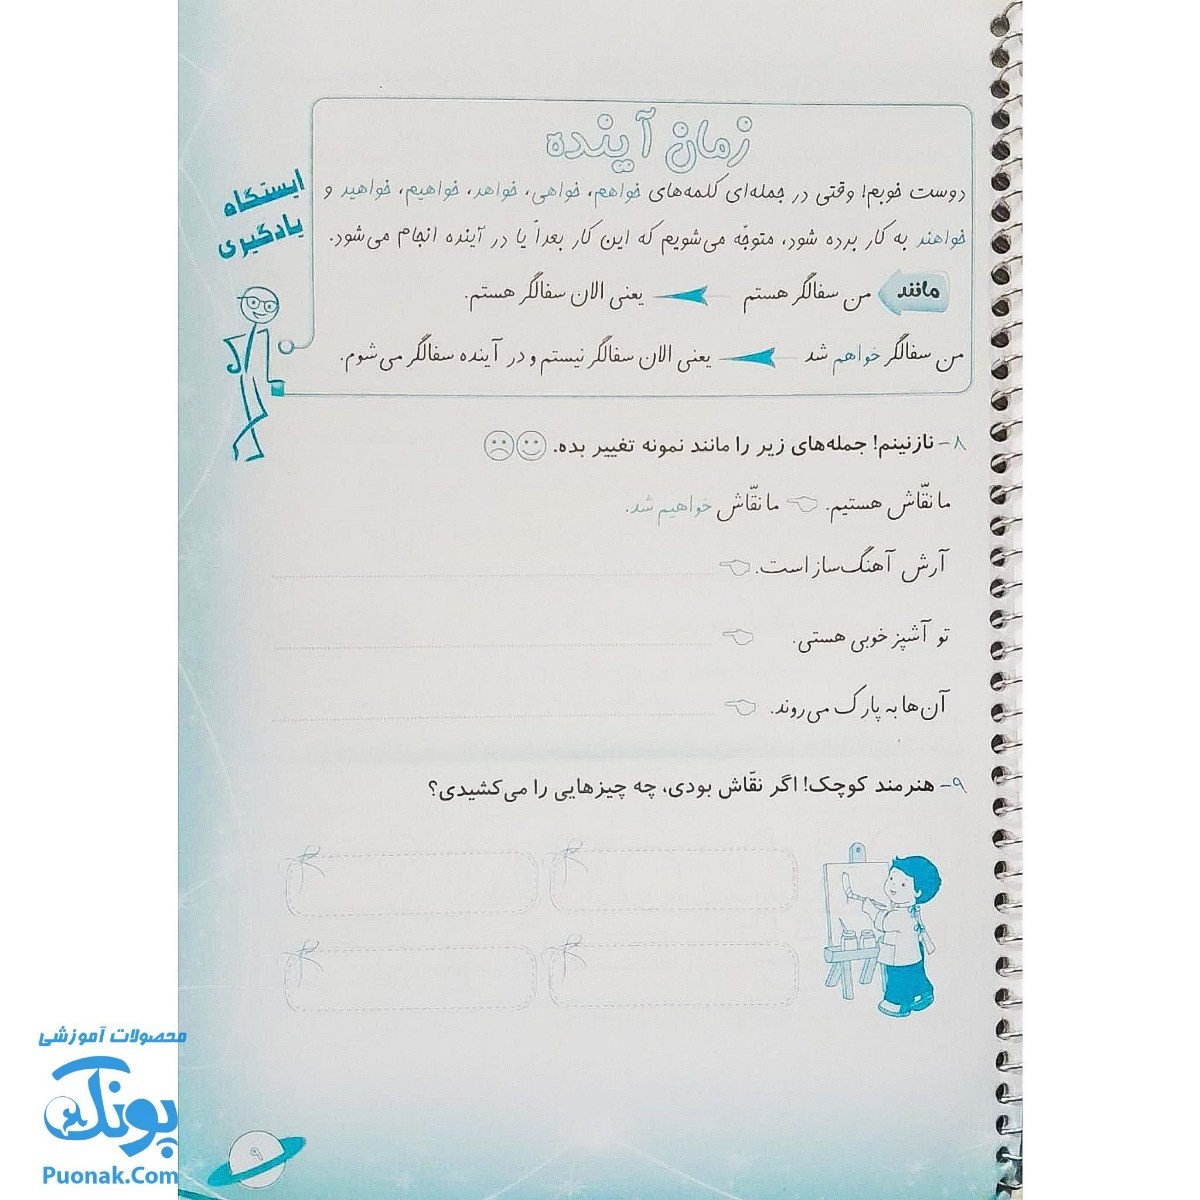 زمان آینده
ایستگاه
یادگیری
دوست خوبم! وقتی در جمله‌ای کلمه‌های خواهم، خواهی، خواهد، خواهیم، خواهید و
خواهند به کار برده شود، متوجّه می‌شویم که این کار بعداً یا در آینده انجام می‌شود.
مانند من سفالگر هستم یعنی الان سفالگر هستم.
من سفالگر خواهم شد یعنی الان سفالگر نیستم و در آینده سفالگر می‌شوم.
۸- نازنینم! جمله‌های زیر را مانند نمونه تغییر بده.
ما نقّاش هستیم. ما نقّاش خواهیم شد.
آرش آهنگ‌ساز است.
تو آشپز خوبی هستی.
آن‌ها به پارک می‌روند.
۹- هنرمند کوچک! اگر نقّاش بودی، چه چیزهایی را می‌کشیدی؟
محصولات آموزشی
پونک
Puonak.Com
۹